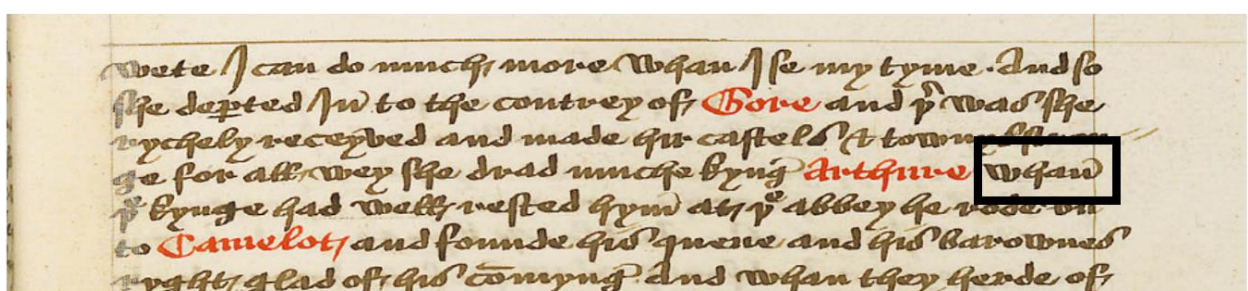 wete I can do much more Whan I se my tyme . And so
she deꝑted In̄ to the contrey of Gore and þͬ was she
rychely receyved and made hir castels & townys
ge for all wey she drad muche kyng Arthure Whan̄
þͤ kynge had well rested hym̄ at þͤ abbey he rode vn
to Camelot and founde his quene and his barownes
ryght glad of his com̄yng And whan they herde of